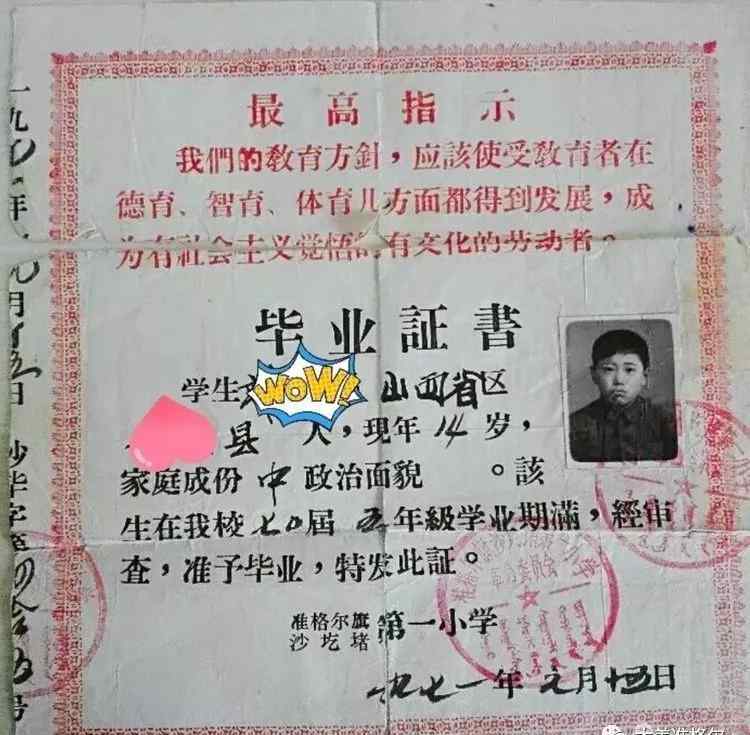 最高指示
我們的教育方針，应該使受教育者在
德育、智育、体育几方面都得到发展，成
为有社会主义觉悟的有文化的劳动者。
毕业証書
学生 WOW! 山西省区
县 人，現年14岁，
家庭成份中政治面貌 。該
生在我校七〇届五年級学业期滿，經审
查，准予毕业，特发此証。
准格尔旗
沙圪堵
第一小学
一九七一年元月十五日